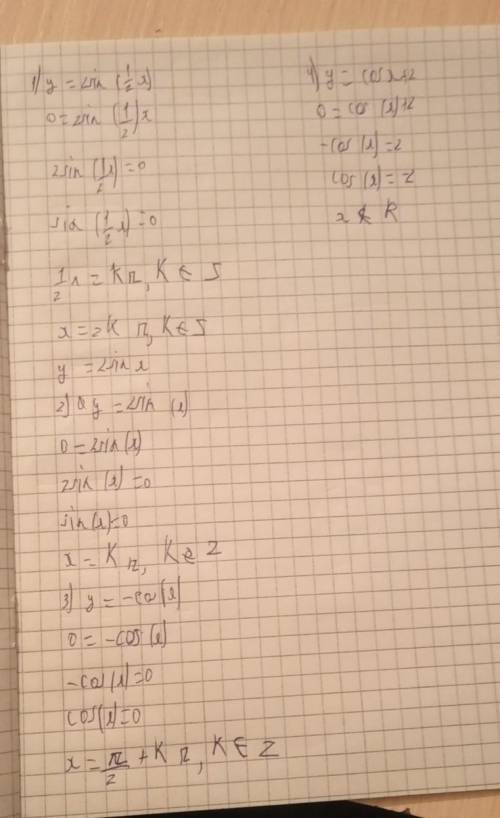 1) y = 2sin (1/2 x)
0 = 2sin (1/2) x
2sin (1/2 x) = 0
sin (1/2 x) = 0
1/2 x = Kπ, K ∈ S
x = 2K π, K ∈ S
y = 2sin x
2) y = 2sin (x)
0 = 2sin (x)
2sin (x) = 0
sin (x) = 0
x = K π, K ∈ Z
3) y = -cos (x)
0 = -cos (x)
-cos (x) = 0
cos (x) = 0
x = π/2 + K π, K ∈ Z
4) y = cos x+2
0 = cos (x)+2
-cos (x) = 2
cos (x) = 2
x ∉ R